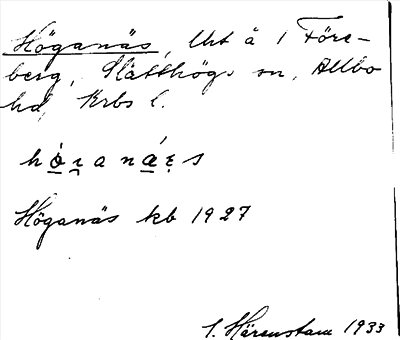 Höganäs, Uht å 1 Före-
berg, Slätthögs sn, Allbo
hd, Krbs l.
Höganäs kb 1927
S. Härenstam 1933